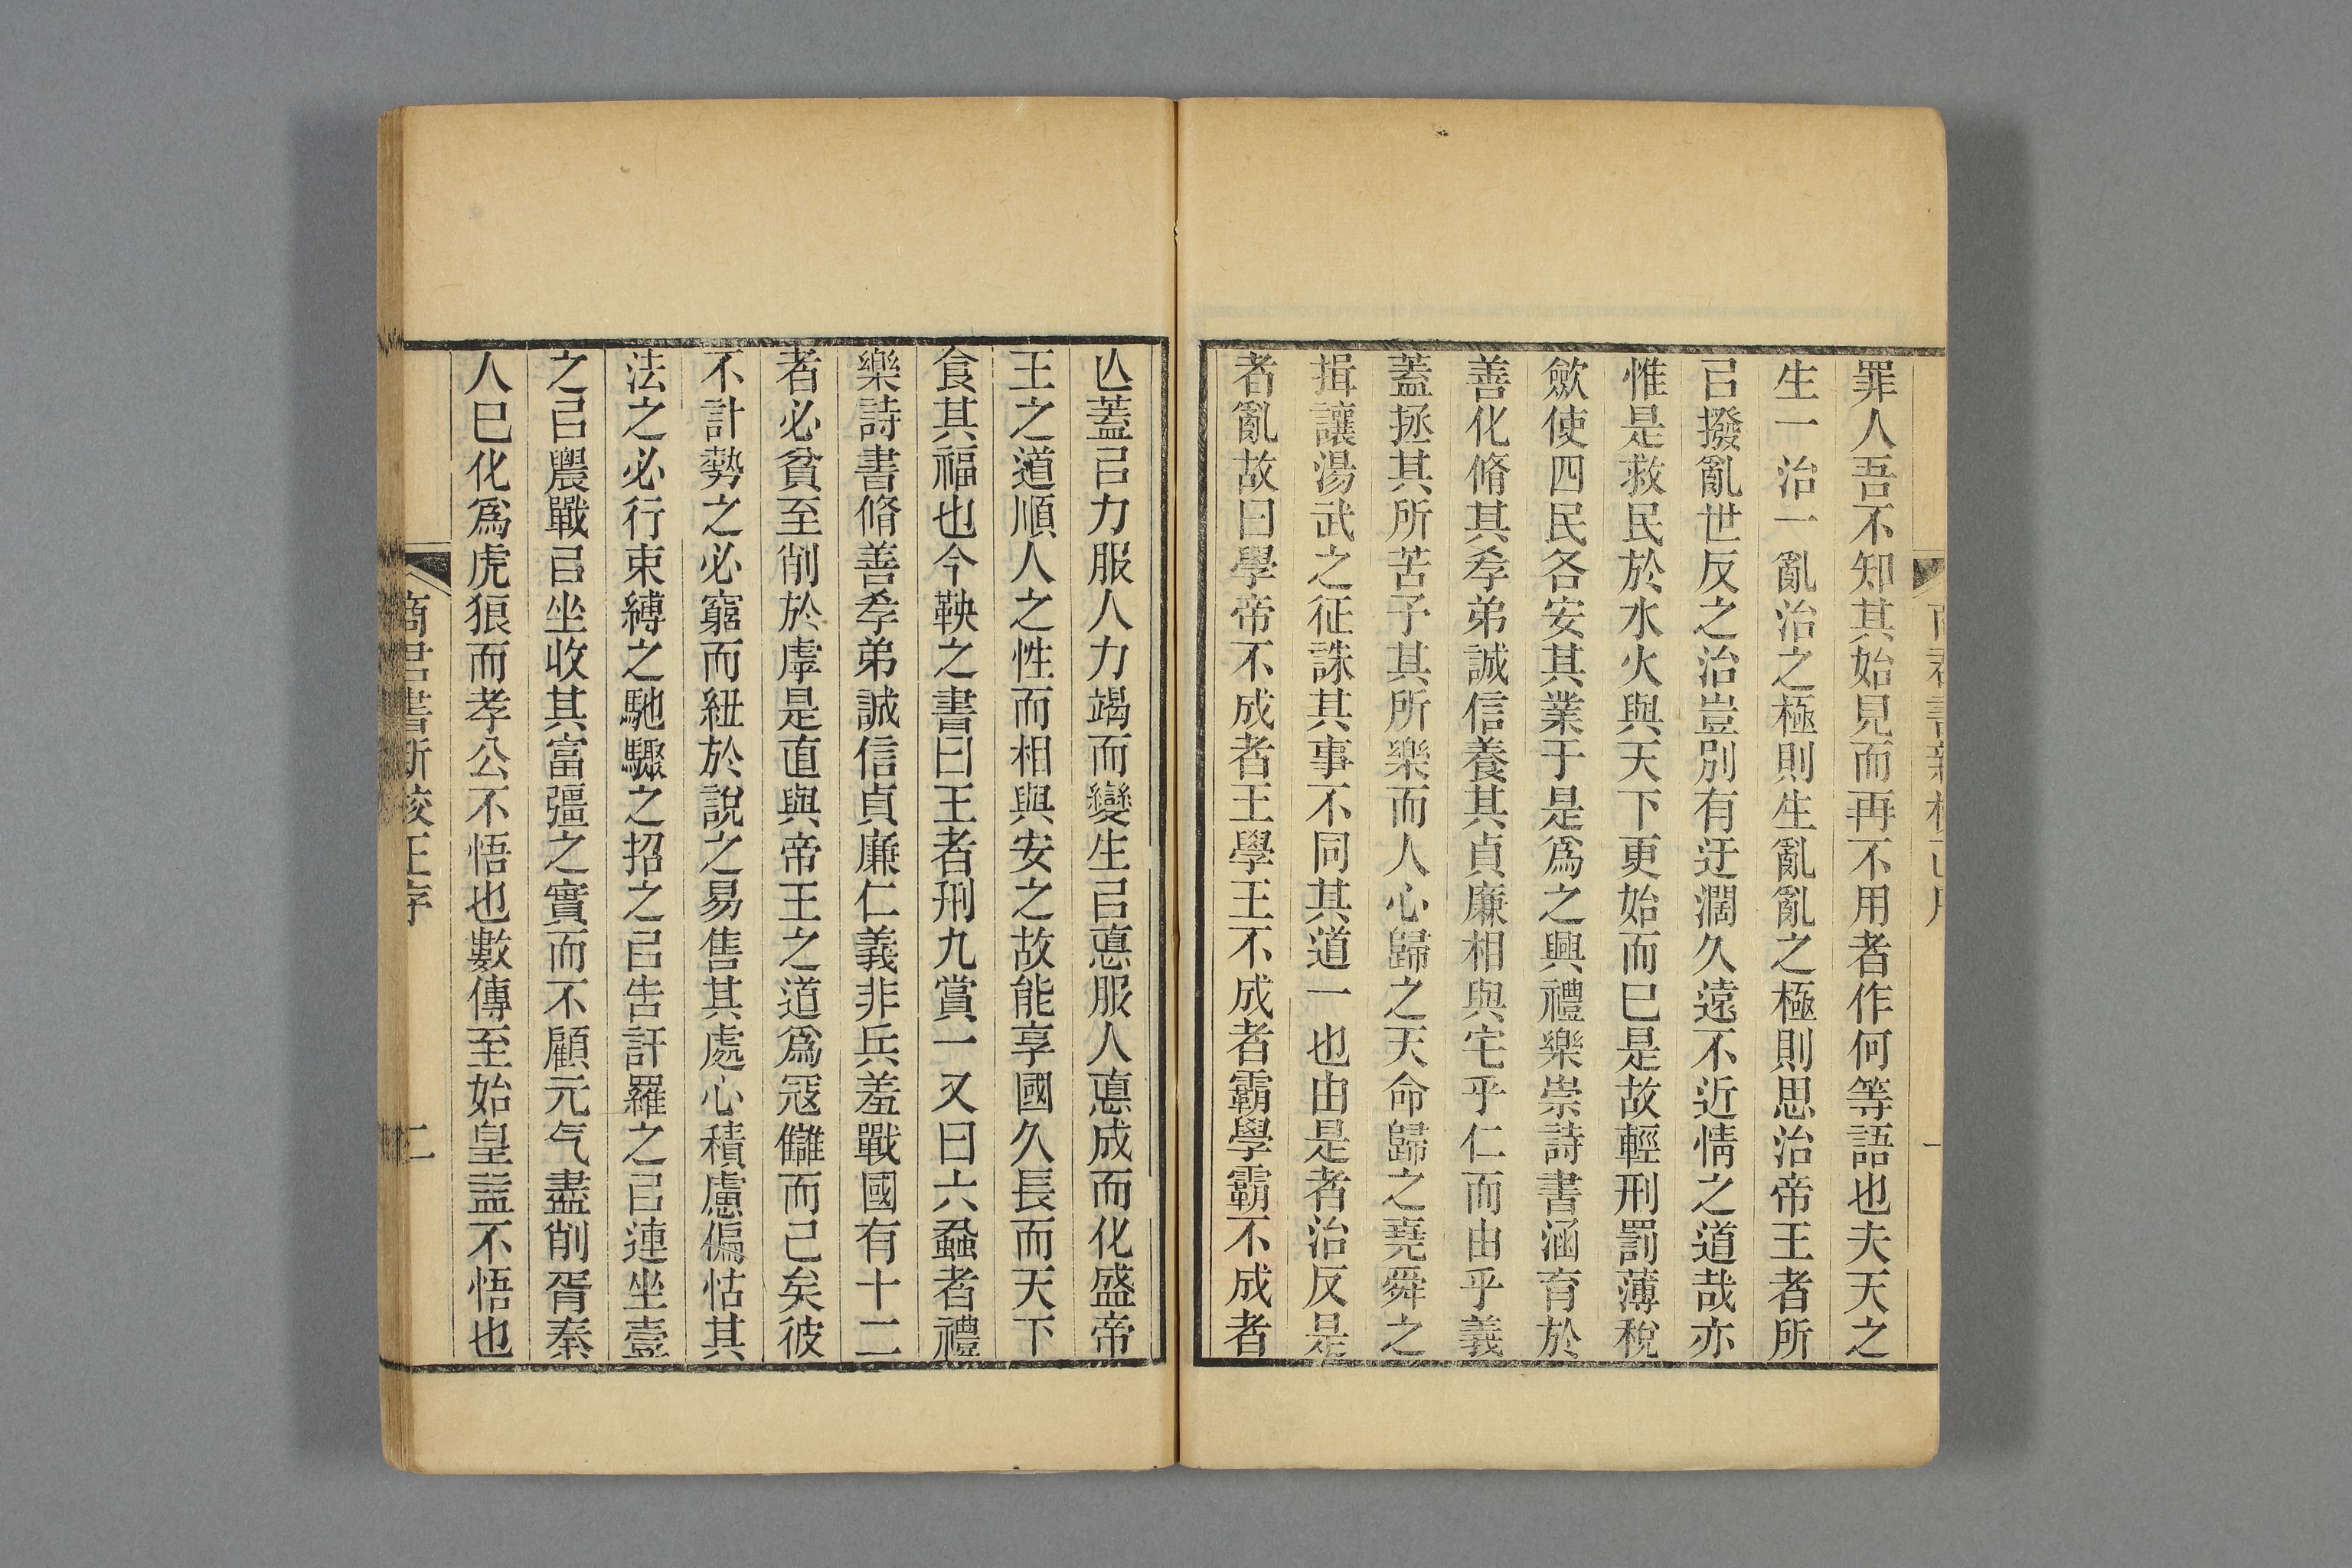 罪人吾不知其始見而再不用者作何等語也夫天之
生一治一亂治之極則生亂亂之極則思治帝王者所
㠯撥亂世反之治豈別有迂濶久遠不近情之道哉亦
惟是救民於水火與天下更始而已是故輕刑罰薄稅
歛使四民各安其業于是爲之興禮樂崇詩書涵育於
善化脩其孝弟誠信養其貞廉相與宅乎仁而由乎義
蓋拯其所苦予其所樂而人心歸之天命歸之堯舜之
揖讓湯武之征誅其事不同其道一也由是者治反是
者亂故曰學帝不成者王學王不成者霸學霸不成者
亾蓋㠯力服人力竭而變生㠯悳服人悳成而化盛帝
王之道順人之性而相與安之故能享國久長而天下
食其福也今鞅之書曰王者刑九賞一又曰六蝨者禮
樂詩書脩善孝弟誠信貞廉仁義非兵羞戰國有十二
者必貧至削於虖是直與帝王之道爲冦讎而己矣彼
不計勢之必窮而紐於說之易售其處心積慮偏怙其
法之必行束縛之馳驟之招之㠯告訐羅之㠯連坐壹
之㠯農戰㠯坐收其富彊之實而不顧元气盡削胥秦
人巳化爲虎狼而孝公不悟也數傳至始皇㿽不悟也
商君書新校正序
二